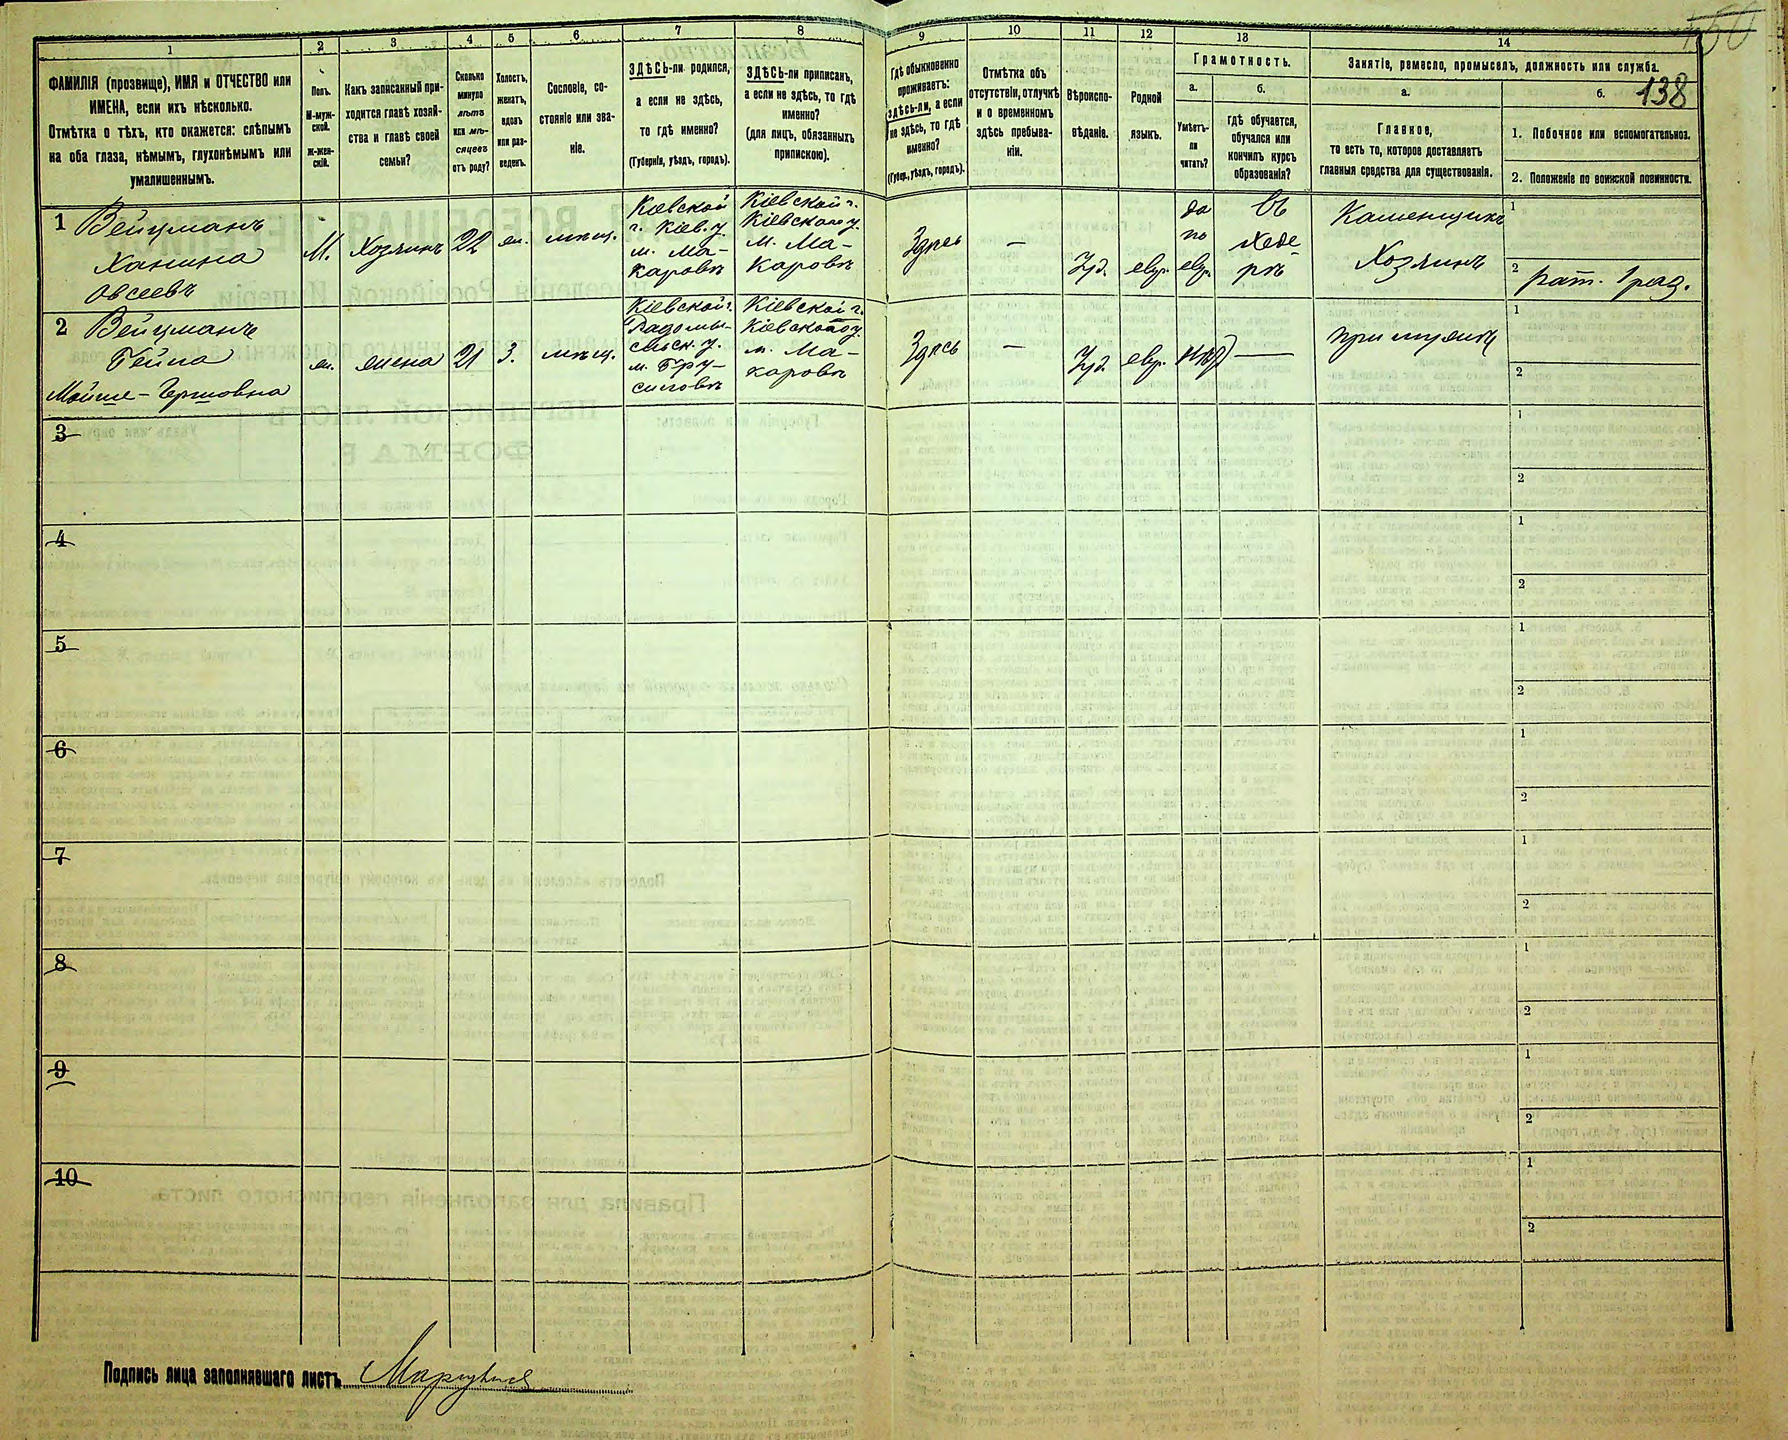 138
1 2 3 4 5 6 7 8 9 10 11 12 13 14
ФАМИЛІЯ (прозвище), ИМЯ и ОТЧЕСТВО или
ИМЕНА, если ихъ нѣсколько.
Отмѣтка о тѣхъ, кто окажется: слѣпымъ
на оба глаза, нѣмымъ, глухонѣмымъ или
умалишеннымъ.
Полъ.
М-муж-
ской.
Ж-жен-
скій.
Какъ записанный при-
ходится главѣ хозяй-
ства и главѣ своей
семьи?
Сколько
минуло
лѣтъ
или мѣ-
сяцевъ
отъ роду?
Холостъ,
женатъ,
вдовъ
или раз-
веденъ.
Сословіе, со-
стояніе или зва-
ніе.
ЗДѢСЬ-ли родился,
а если не здѣсь,
то гдѣ именно?
(Губернія, уѣздъ, городъ).
ЗДѢСЬ-ли приписанъ,
а если не здѣсь, то гдѣ
именно?
(для лицъ, обязанныхъ
припискою).
Гдѣ обыкновенно
проживаетъ:
здѣсь-ли, а если
не здѣсь, то гдѣ
именно?
(Губер., уѣздъ, городъ).
Отмѣтка объ
отсутствіи, отлучкѣ
и о временномъ
здѣсь пребыва-
ніи.
Вѣроиспо-
вѣданіе.
Родной
языкъ.
Грамотность.
а.
Умѣетъ-
ли
читать?
б.
Гдѣ обучается,
обучался или
кончилъ курсъ
образованія?
Занятіе, ремесло, промыселъ, должность или служба.
а.
Главное,
то есть то, которое доставляетъ
главныя средства для существованія.
б.
1. Побочное или вспомогательное.
2. Положеніе по воинской повинности.
1 Вейцманъ
Ханина
Овсеевъ
М.
Хозяинъ
22
ж.
мѣщ.
Кіевской
г. Кіев. у.
м. Ма-
каровъ
Кіевской г.
Кіевского у.
м. Ма-
каровъ
Здѣсь
—
Іуд.
евр.
да
по
евр.
въ
Хеде-
рѣ
Каменщикъ
Хозяинъ
1
2 рат.
2 Вейцманъ
Бейла
Мойше-Гершовна
ж.
жена
21
З.
мѣщ.
Кіевской г.
Радомы-
сльск. у.
м. Бру-
силовъ
Кіевской г.
Кіевского у.
м. Ма-
каровъ
Здѣсь
—
Іуд.
евр.
нѣт
—
при мужѣ
1
2
3
1
2
4
1
2
5
1
2
6
1
2
7
1
2
8
1
2
9
1
2
10
1
2
Подпись лица заполнявшаго листъ